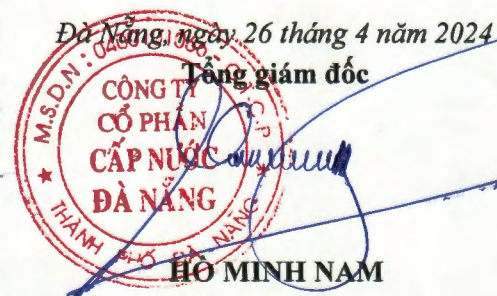 Đà Nẵng, ngày 26 tháng 4 năm 2024
Tổng giám đốc
M.S.D.N:
C.T.C.P
CÔNG TY
CỔ PHẦN
CẤP NƯỚC
ĐÀ NẴNG
THÀNH PHỐ ĐÀ NẴNG
HỒ MINH NAM